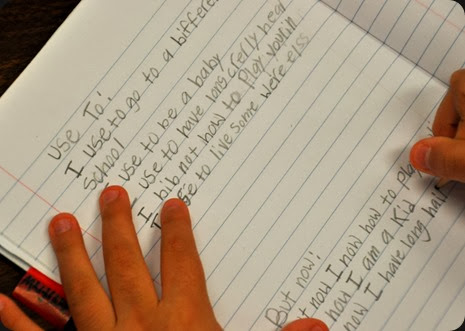 use To:
I use to go to a biffere
School
use to be a baby
I use to have long hear
I bib not how to Play
to live some were elss
But now:
now I now how to play
I am a Kid
now I have long hair